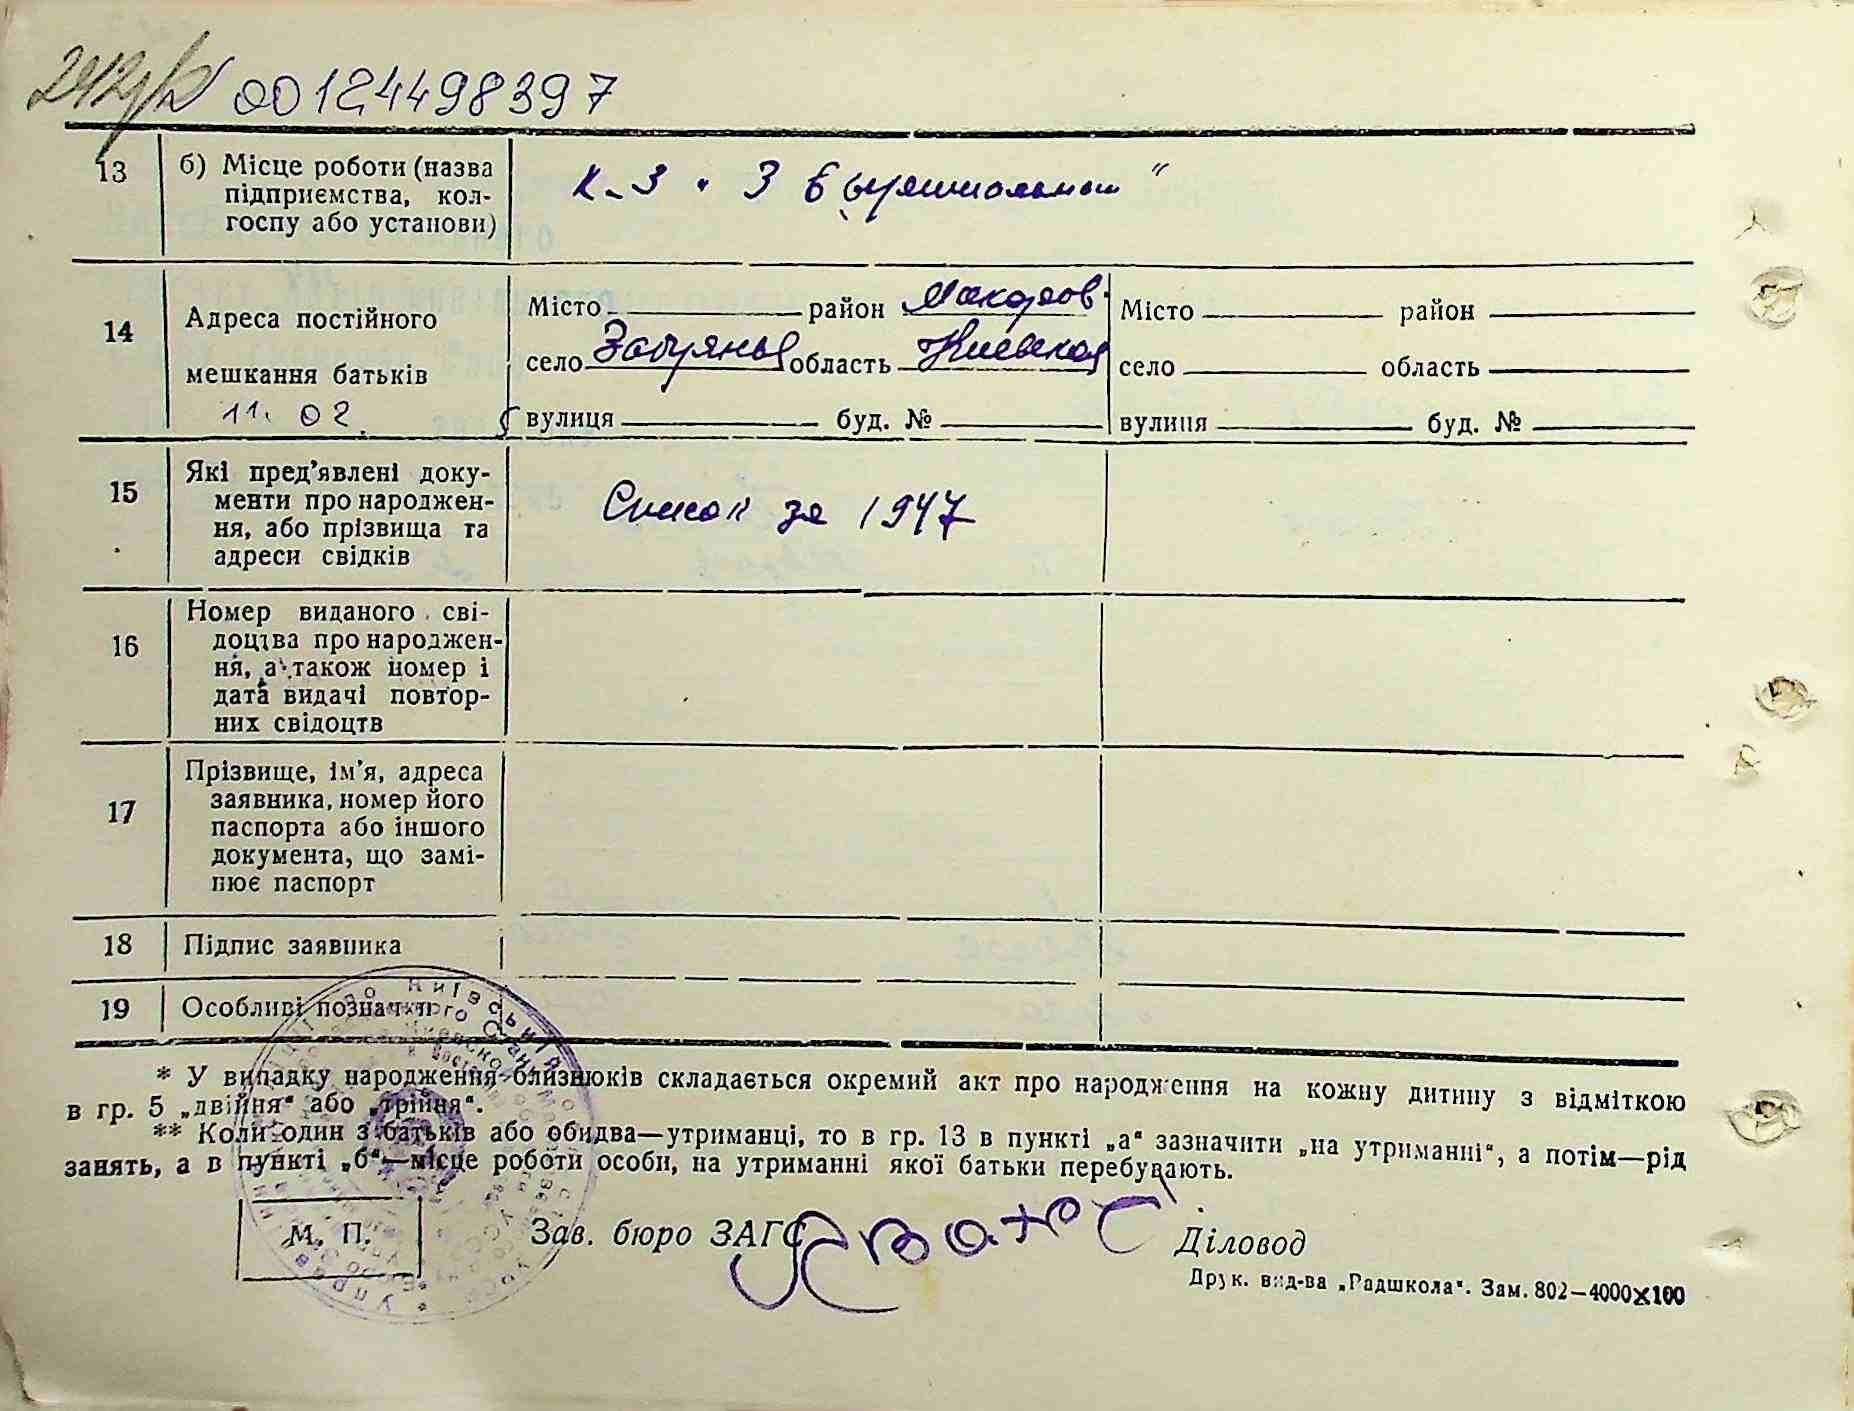 00124498397
13 б) Місце роботи (назва
підприємства, кол-
госпу або установи)
к-з "З
14 Адреса постійного
мешкання батьків
11. 02.
Місто район Макаров.
село Забуяння область Киевская
вулиця буд. №
Місто район
село область
вулиця буд. №
15 Які пред’явлені доку-
менти про народжен-
ня, або прізвища та
адреси свідків
Список за 1947
16 Номер виданого сві-
доцтва про народжен-
ня, а також номер і
дата видачі повтор-
них свідоцтв
17 Прізвище, ім’я, адреса
заявника, номер його
паспорта або іншого
документа, що замі-
нює паспорт
18 Підпис заявника
19 Особливі позначки
* У випадку народження близнюків складається окремий акт про народження на кожну дитину з відміткою
в гр. 5 „двійня“ або „трійня“.
** Коли один з батьків або обидва—утриманці, то в гр. 13 в пункті „а“ зазначити „на утриманні“, а потім—рід
занять, а в пункті „б“—місце роботи особи, на утриманні якої батьки перебувають.
М. П.
Зав. бюро ЗАГС
Діловод
Друк. вид-ва „Радшкола“. Зам. 802—4000×100